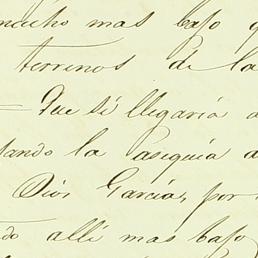 mucho mas bajo q
terrenos de la
— Que si llegaria a
tando la asequia a
Dios Garcia, por
do allí mas bajo